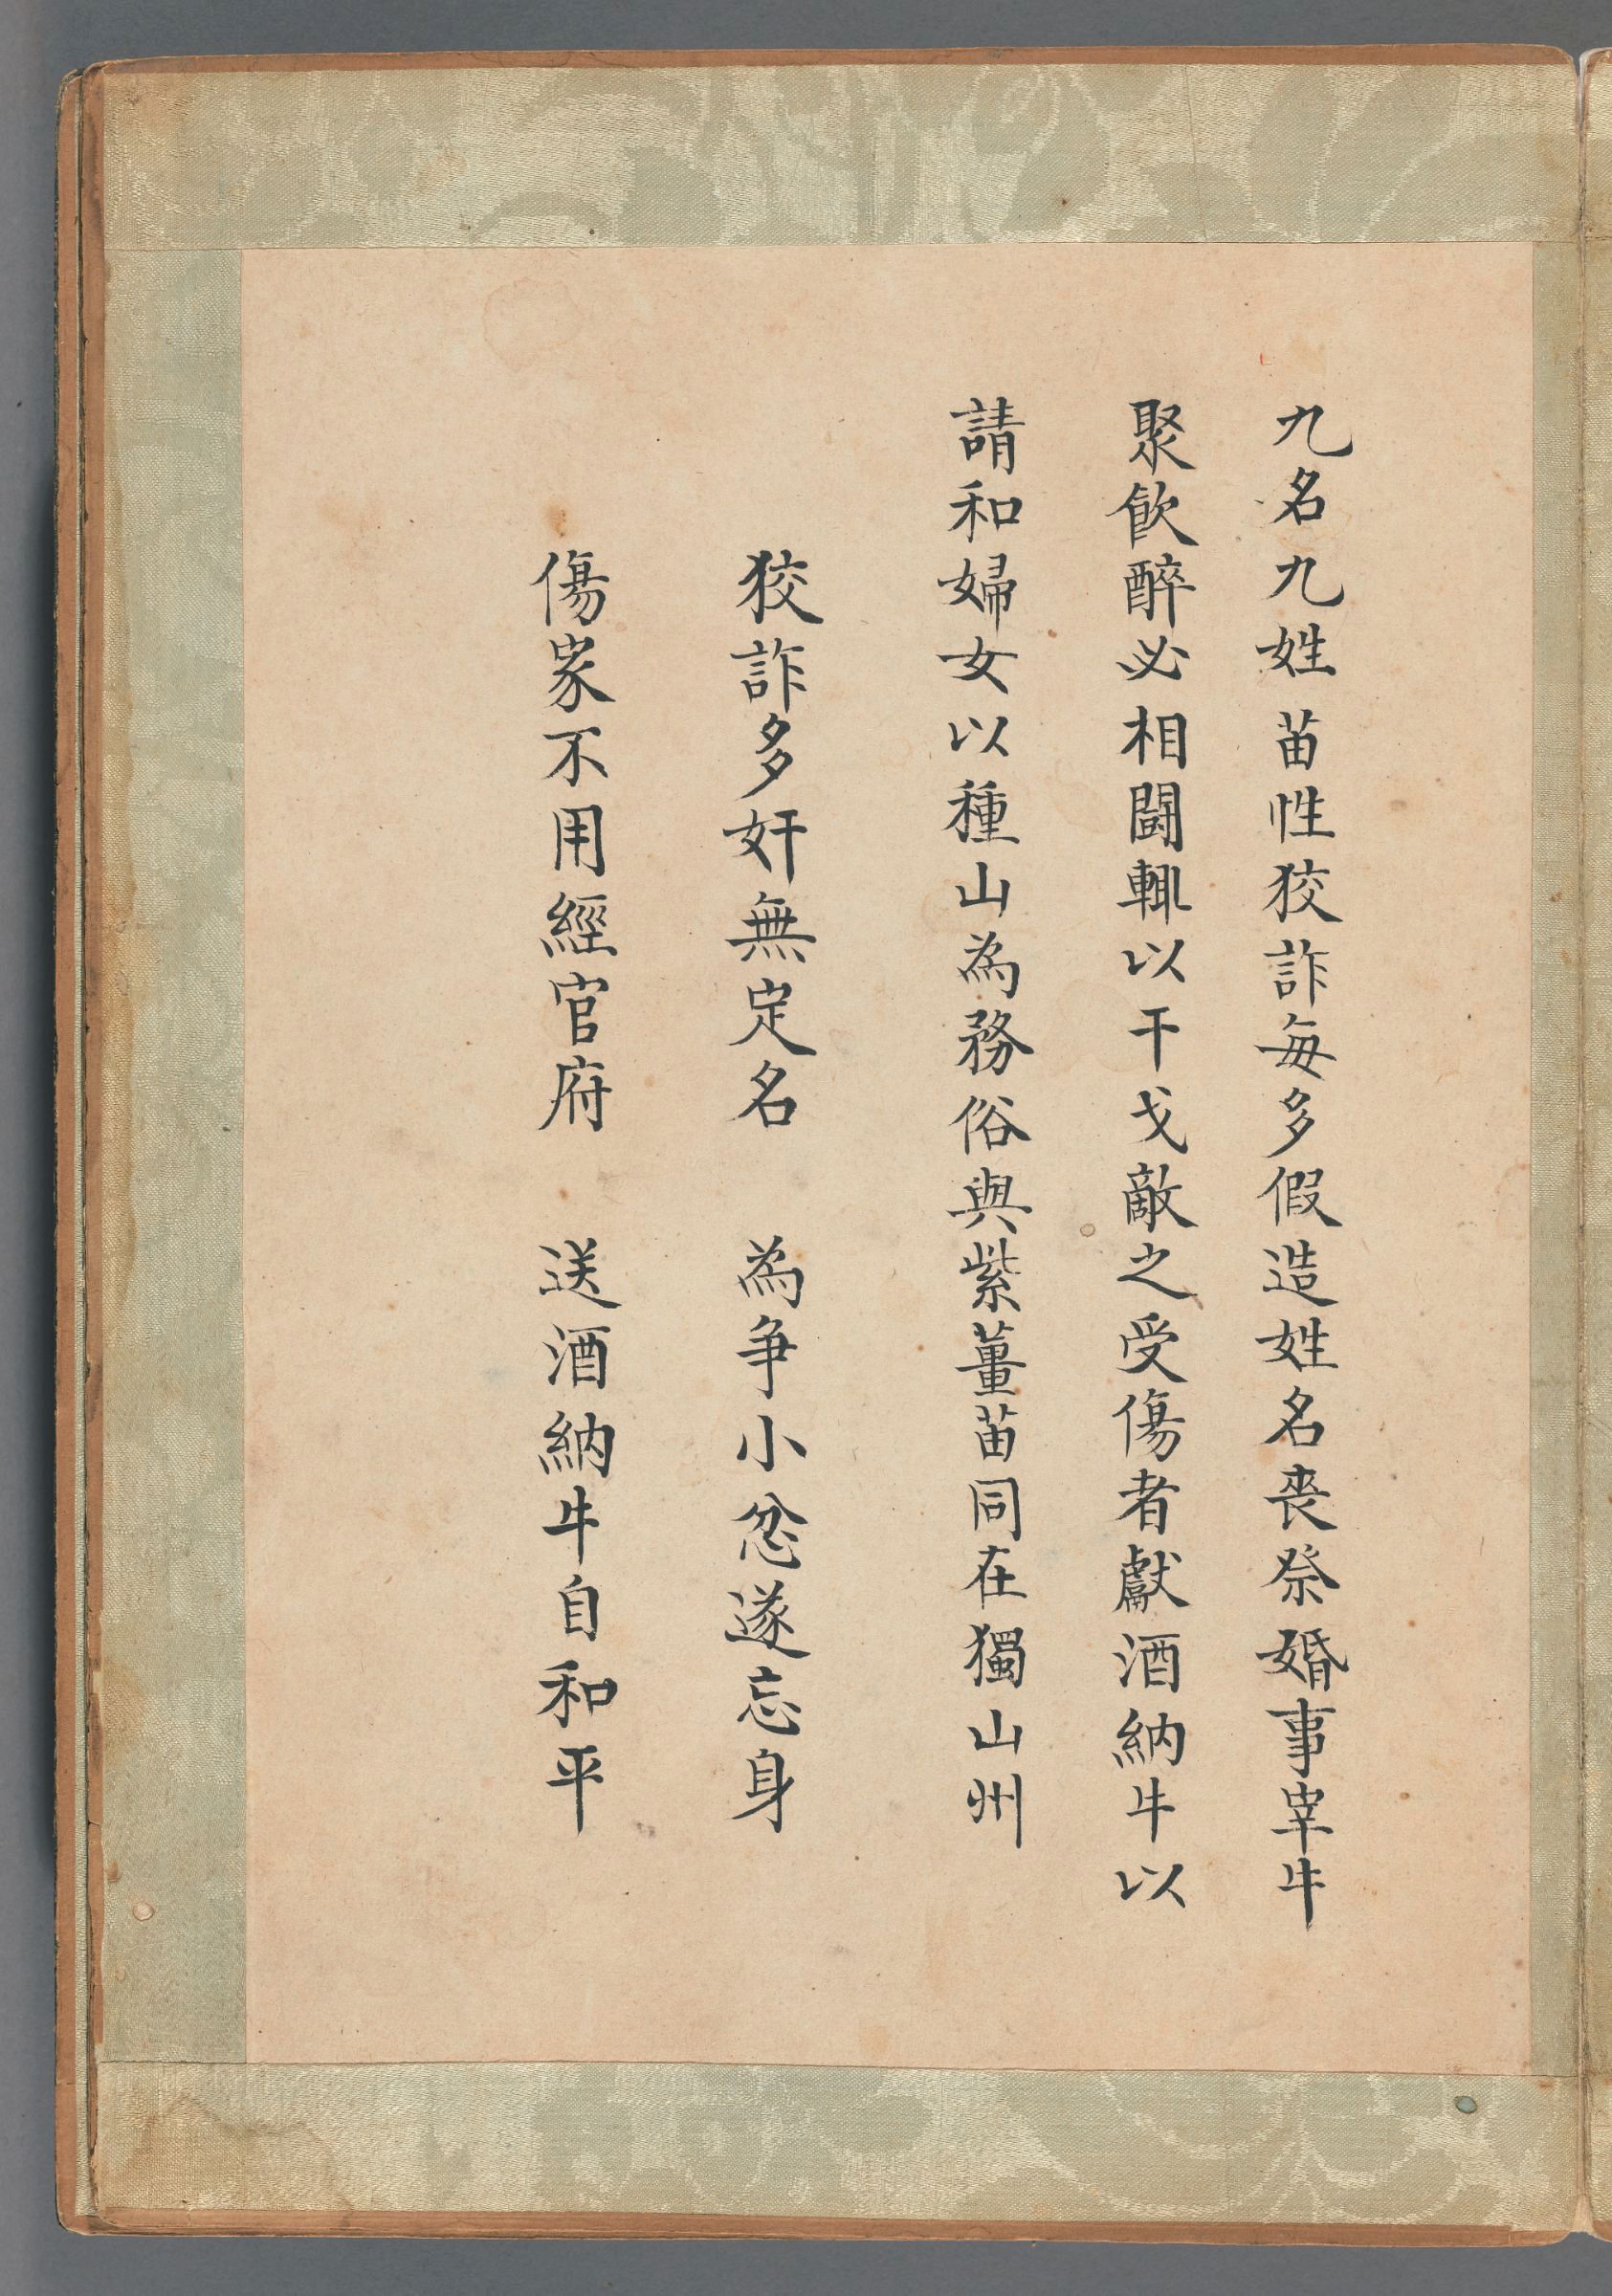 九名九姓苗性狡詐每多假造姓名喪祭婚事宰牛
聚飲醉必相鬪輙以干戈敵之受傷者獻酒納牛以
請和婦女以種山為務俗與紫薑苗同在獨山州
狡詐多奸無定名　為爭小忿遂忘身
傷家不用經官府　送酒納牛自和平